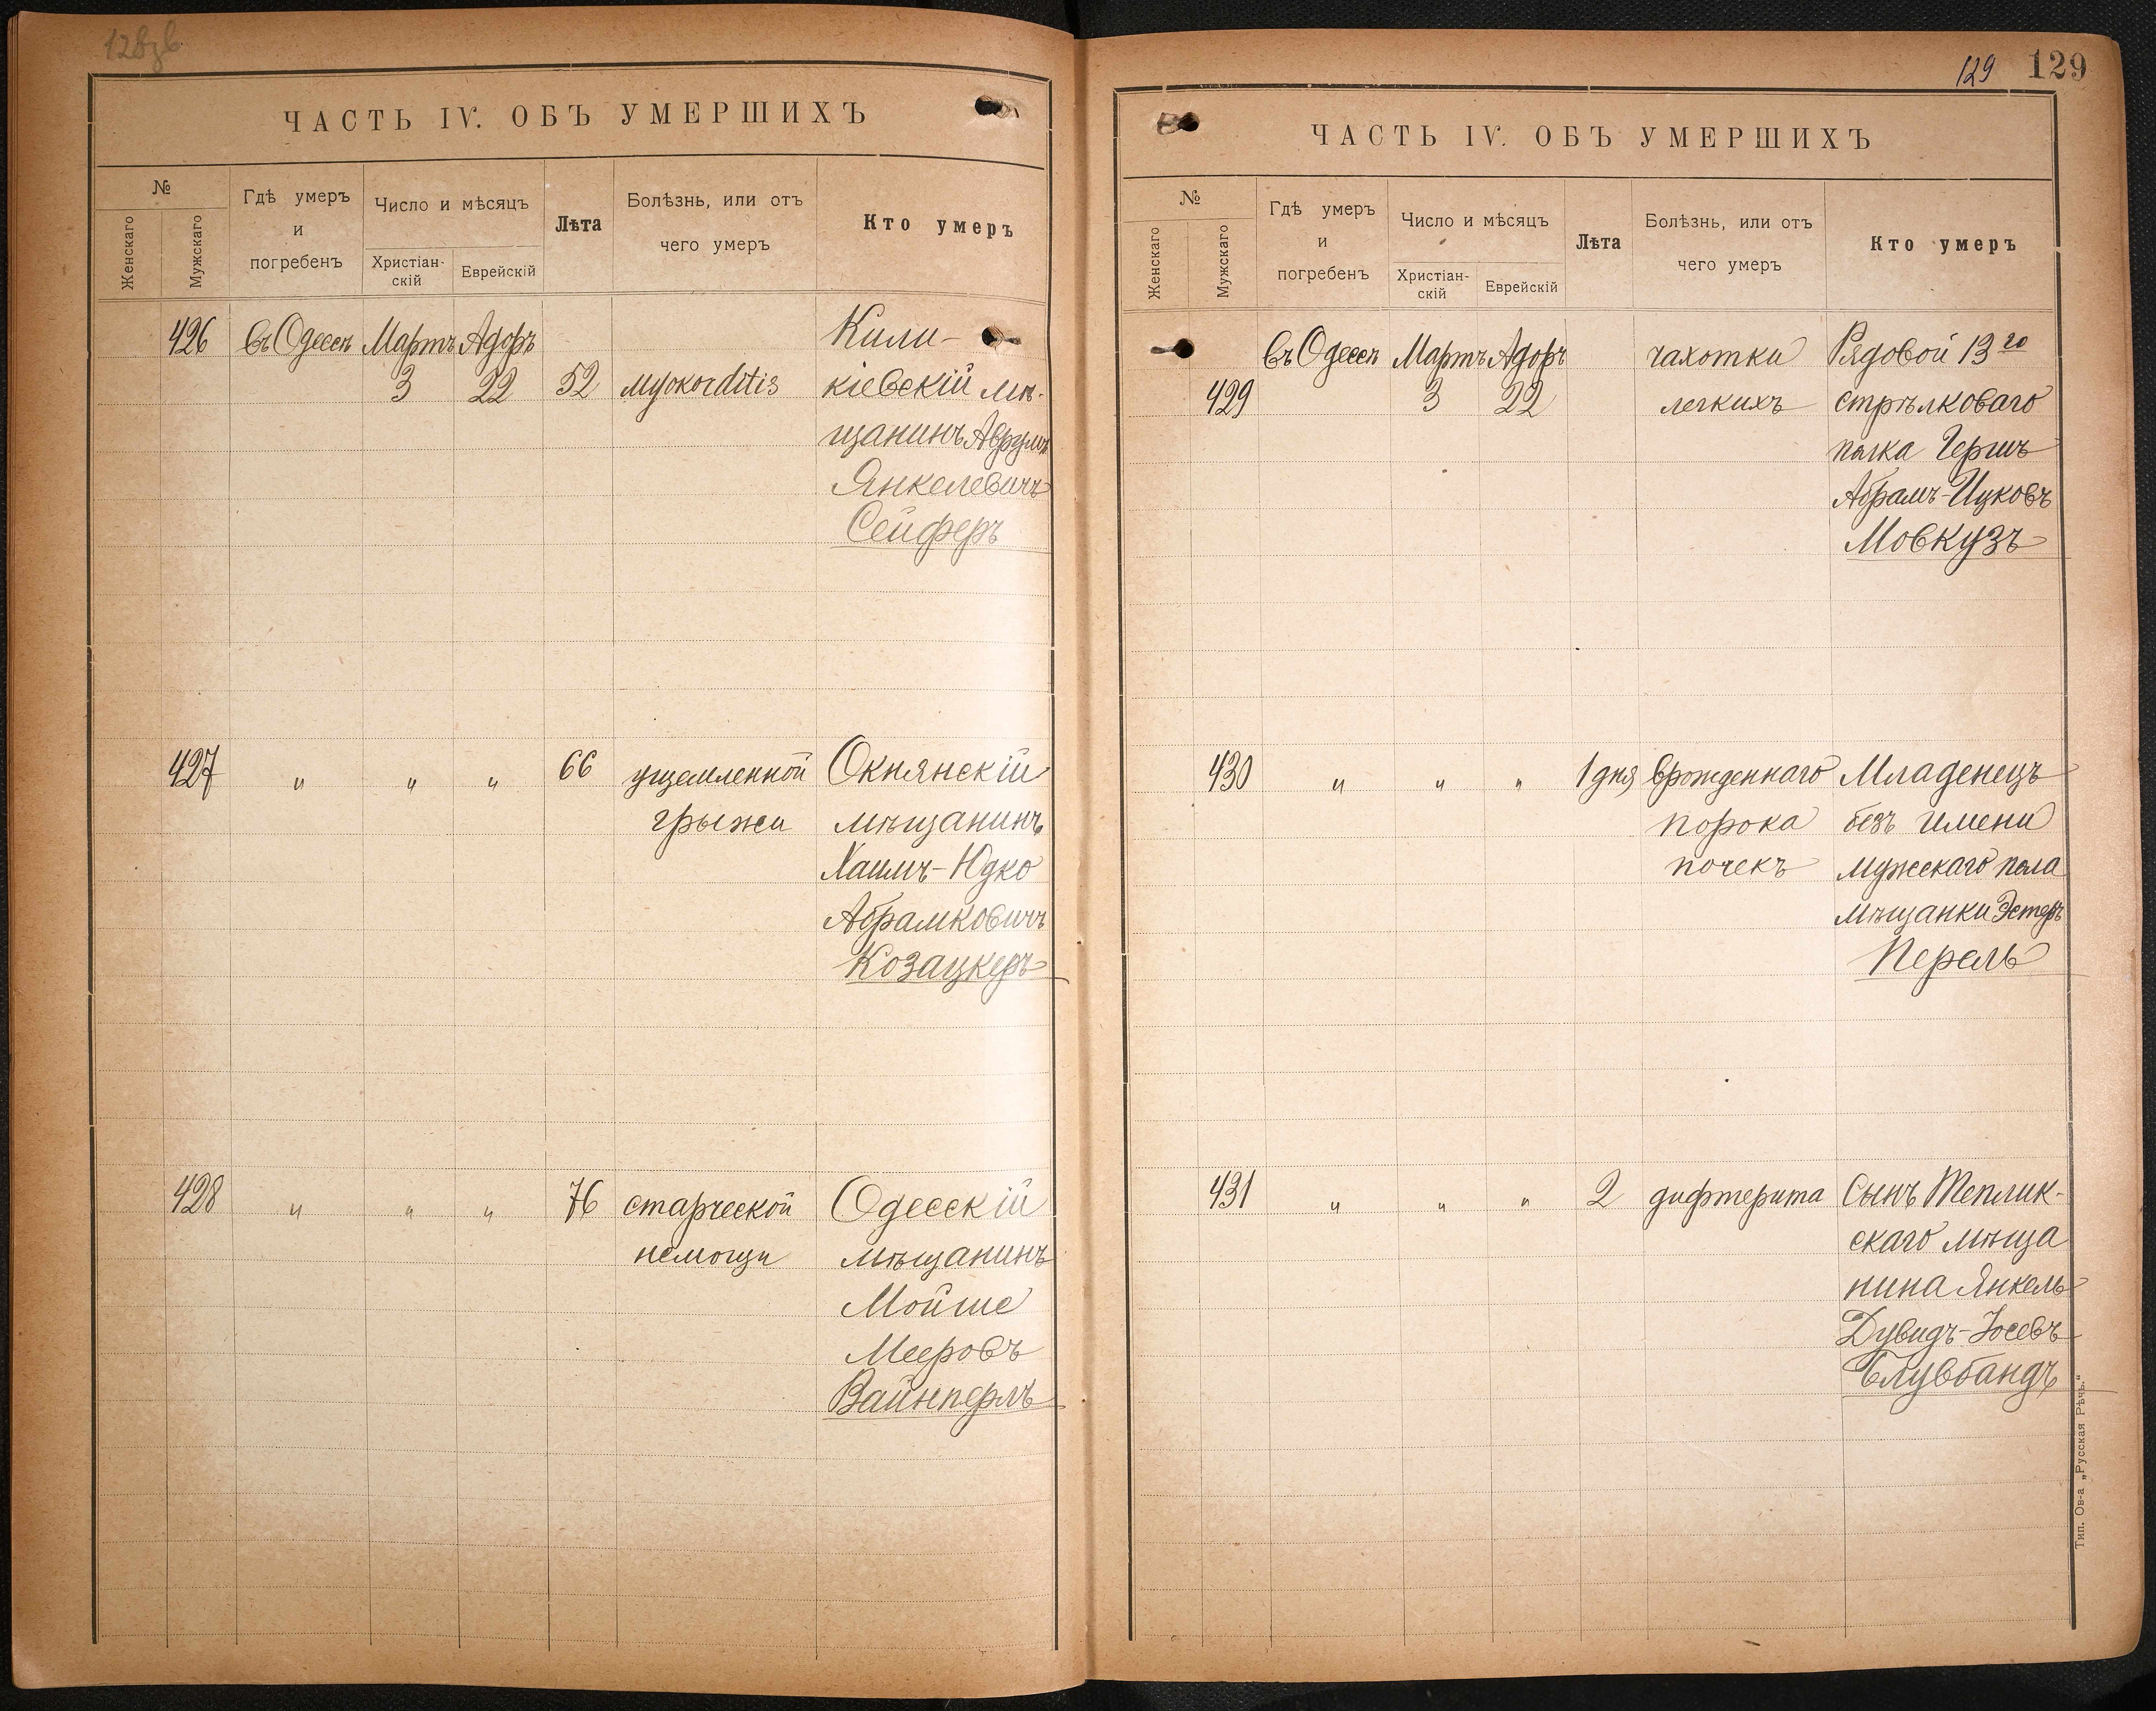 ЧАСТЬ IV. ОБЪ УМЕРШИХЪ
№
Женскаго
Мужскаго
Гдѣ умеръ
и
погребенъ
Число и мѣсяцъ
Христіан-
скій
Еврейскій
Лѣта
Болѣзнь, или отъ
чего умеръ
Кто умеръ
426 въ Одессѣ Мартъ Адоръ Кили-
3 22 52 муокоrditis кіевскій мѣ-
щанинъ Аврумъ
Янкелевичъ
Сейферъ
427 " " " 66 ущемленной Окнянскій
грыжи мѣщанинъ
Хаимъ-Юдко
Абрамковичъ
Козацкеръ
428 " " " 76 старческой Одесскій
немощи мѣщанинъ
Мойше
Мееровъ
Вайнперлъ
129 129
ЧАСТЬ IV. ОБЪ УМЕРШИХЪ
№
Женскаго
Мужскаго
Гдѣ умеръ
и
погребенъ
Число и мѣсяцъ
Христіан-
скій
Еврейскій
Лѣта
Болѣзнь, или отъ
чего умеръ
Кто умеръ
въ Одессѣ Мартъ Адоръ чахотки Рядовой 13го
429 3 22 легкихъ стрѣлковаго
полка Гершъ
Абрамъ-Ицковъ
Мовкузъ
430 " " " 1 дня врожденнаго Младенецъ
порока безъ имени
почекъ мужескаго пола
мѣщанки Эстеръ
Перель
431 " " " 2 дифтерита Сынъ Теплик-
скаго мѣща
нина Янкель
Дувидъ-Іосевъ
Блувбандъ
Тип. Ов-а „Русская Рѣчь."